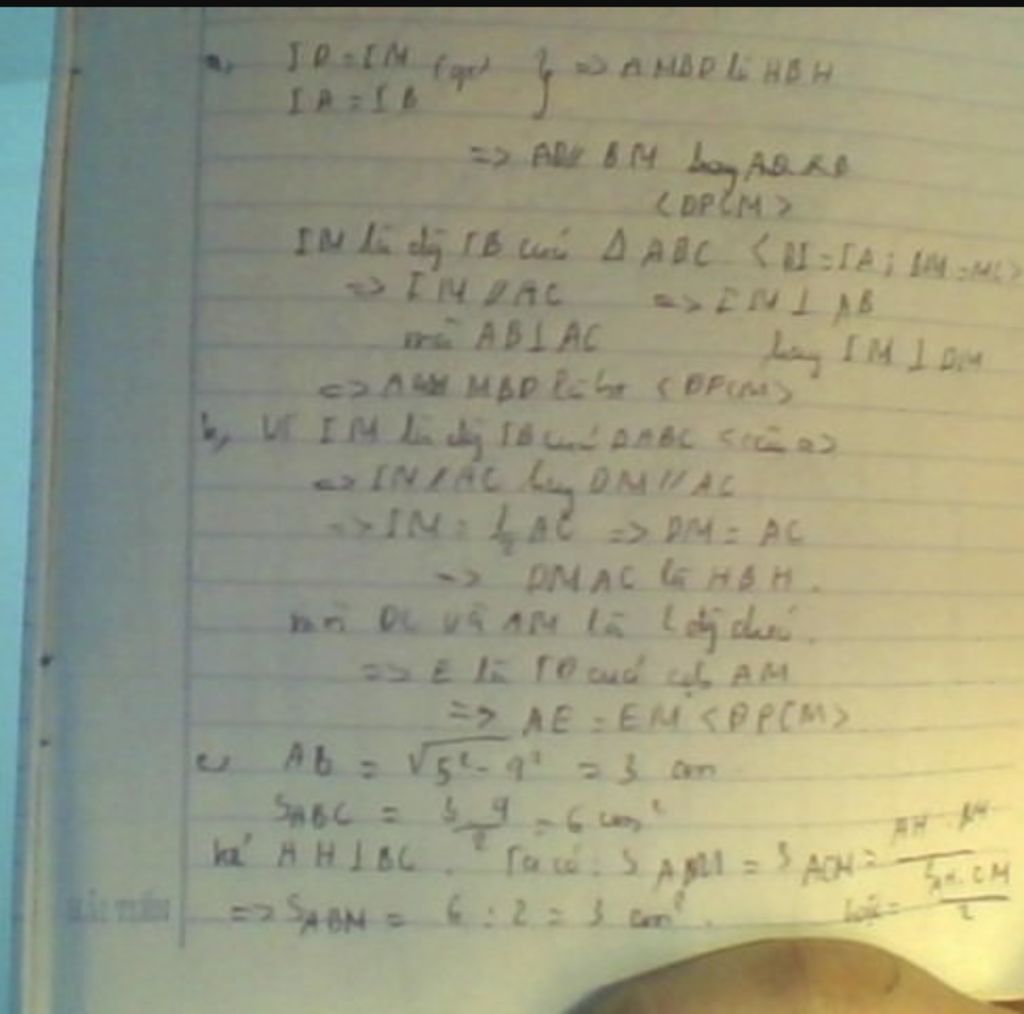 a, ID = IM (gt) } => AMBD là HBH
IA = IB
=> AD // BM hay AD
<ĐPCM>
IM là đg TB của Δ ABC < BI = IA ; BM = MC >
=> IM // AC => IM ⊥ AB
mà AB ⊥ AC hay IM ⊥ DM
=> MBD là <ĐPCM>
b, Vì IM là đg TB của ΔABC < câu a >
=> IM // AC hay DM // AC
=> IM = 1/2 AC => DM = AC
=> DMAC là HBH.
mà DC và AM là 2 đg chéo.
=> E là TĐ của AM
=> AE = EM <ĐPCM>
c, AB = √5² - 4² = 3 cm
SABC = 3.4/2 = 6 cm²
kẻ AH ⊥ BC. Ta có: S ABM = S ACM =
=> SABM = 6 : 2 = 3 cm². AH.CM/2